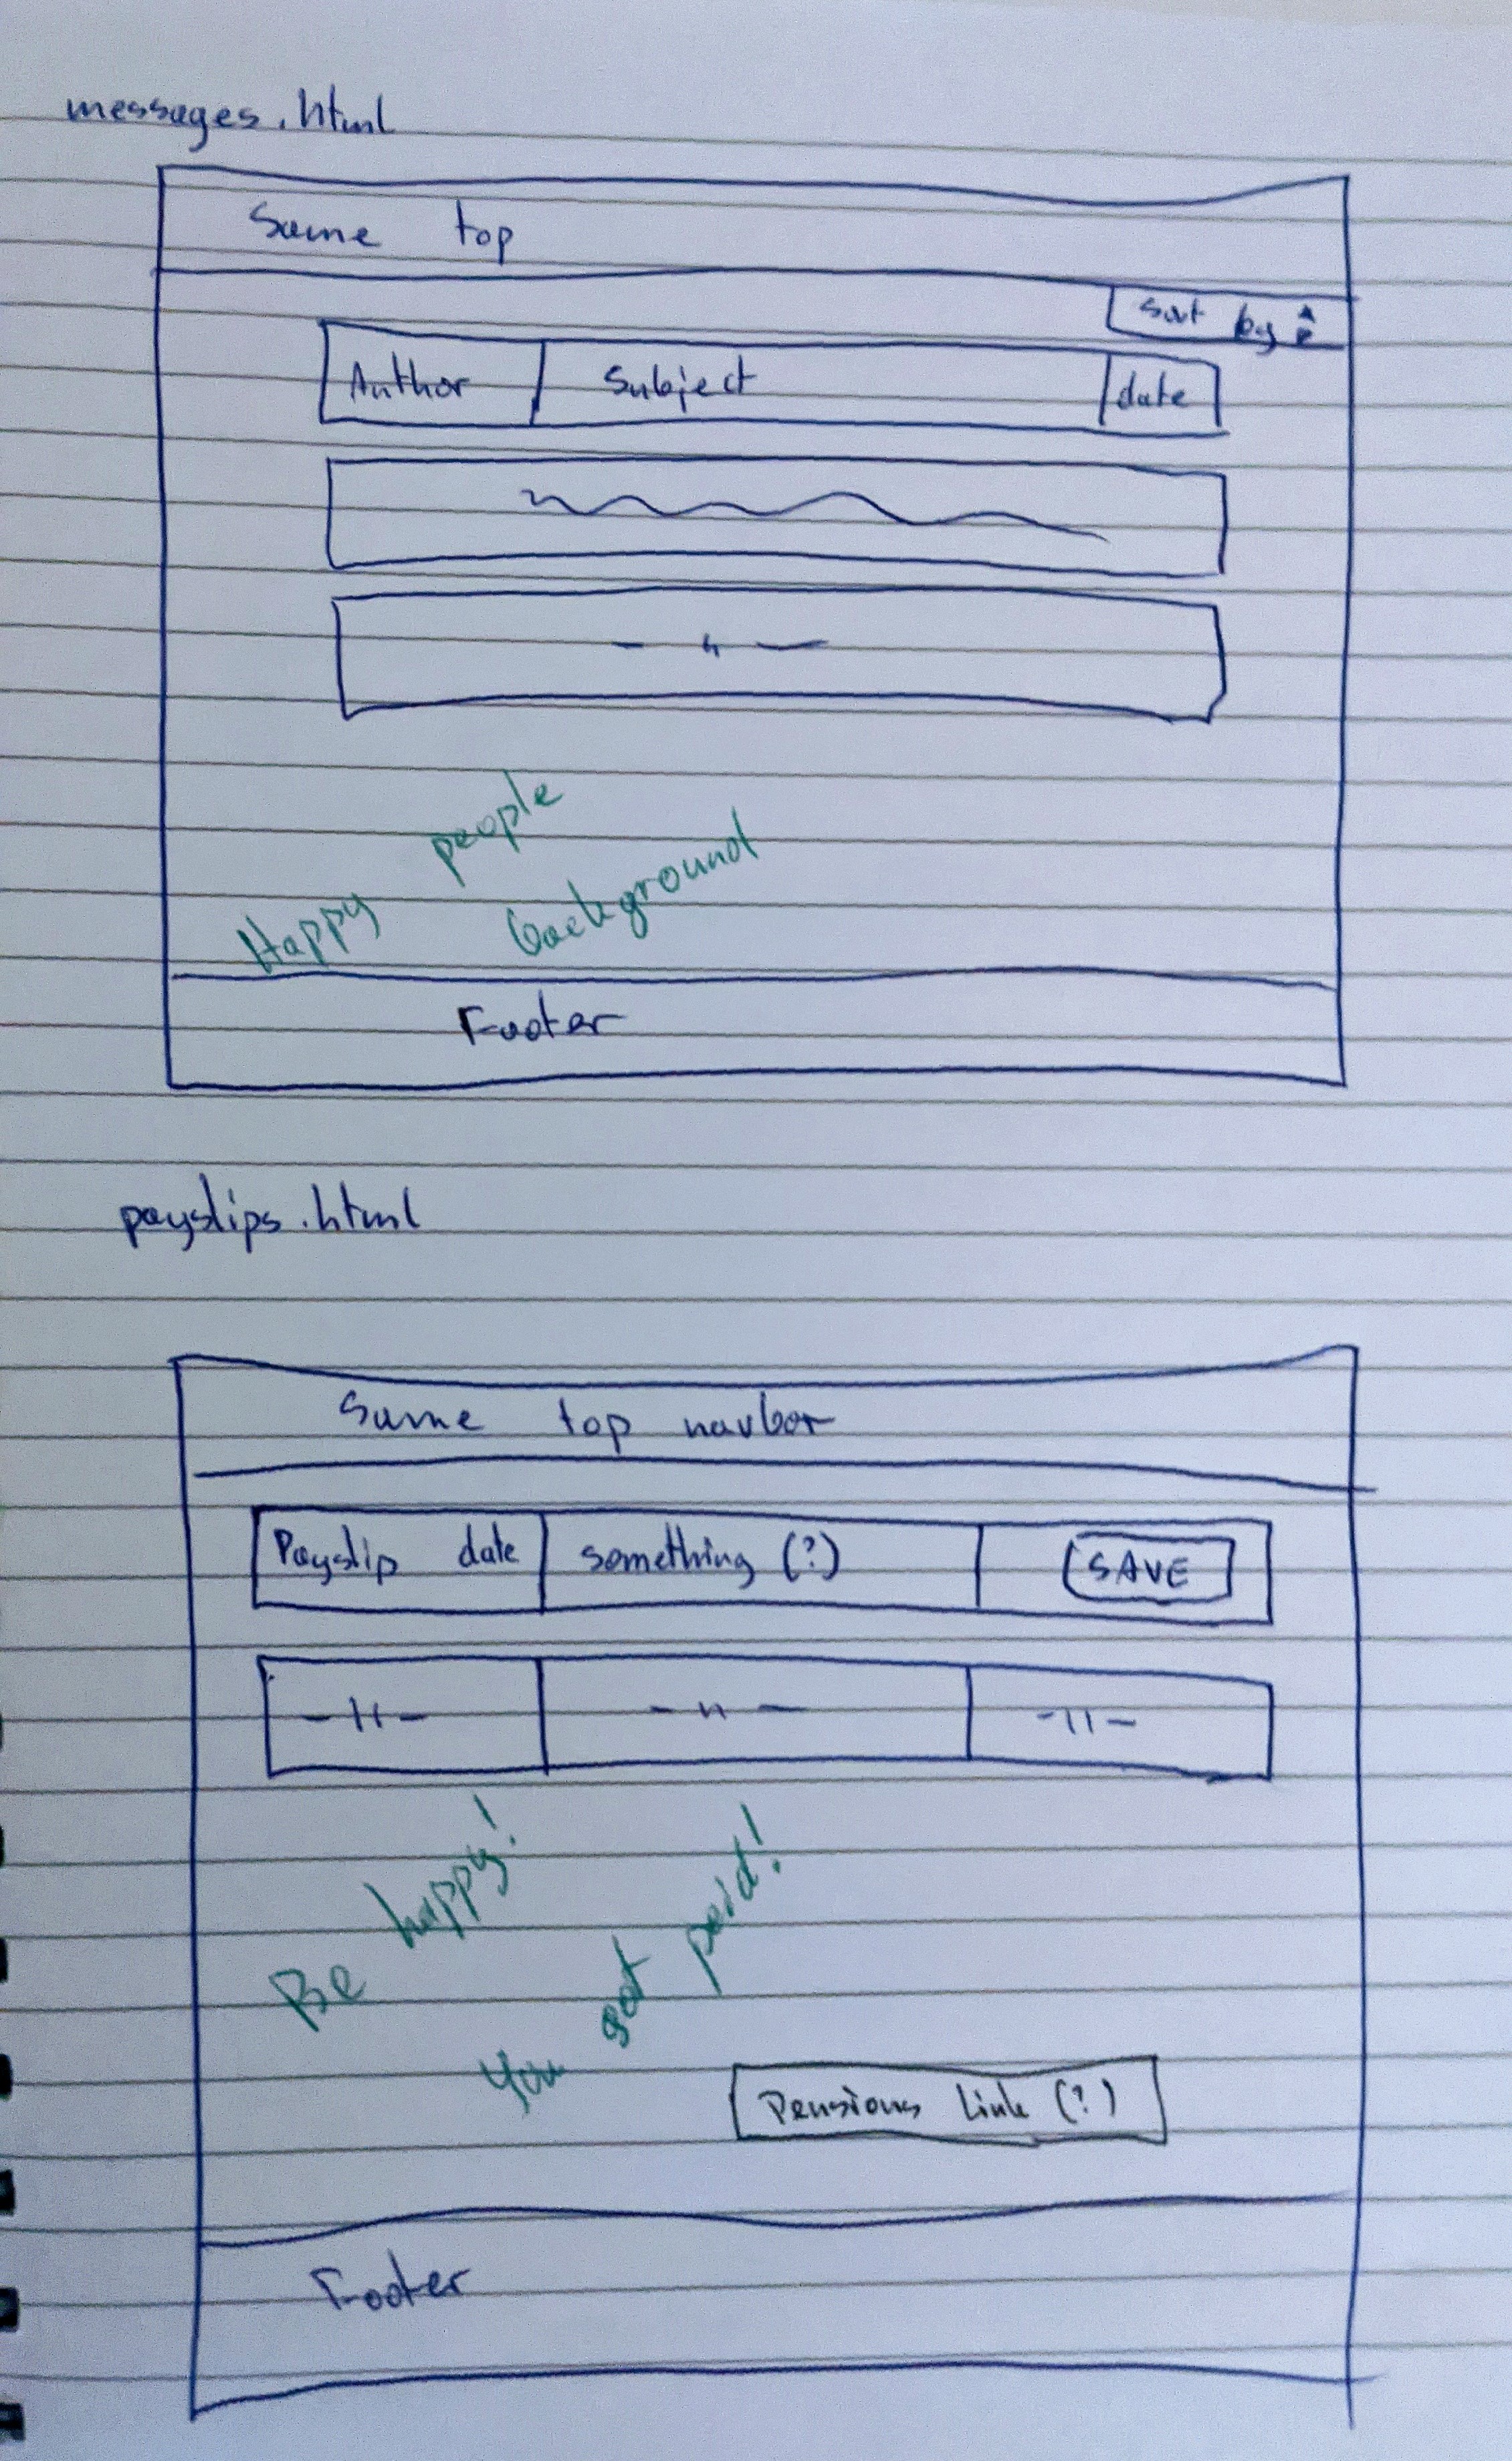 messages.html
Same top
Sort by
Author Subject date
— " —
Happy people
background
Footer
payslips.html
Same top navbar
Payslip date something (?) SAVE
-11- - " - -11-
Be happy!
You got paid!
Pensions link (?)
Footer